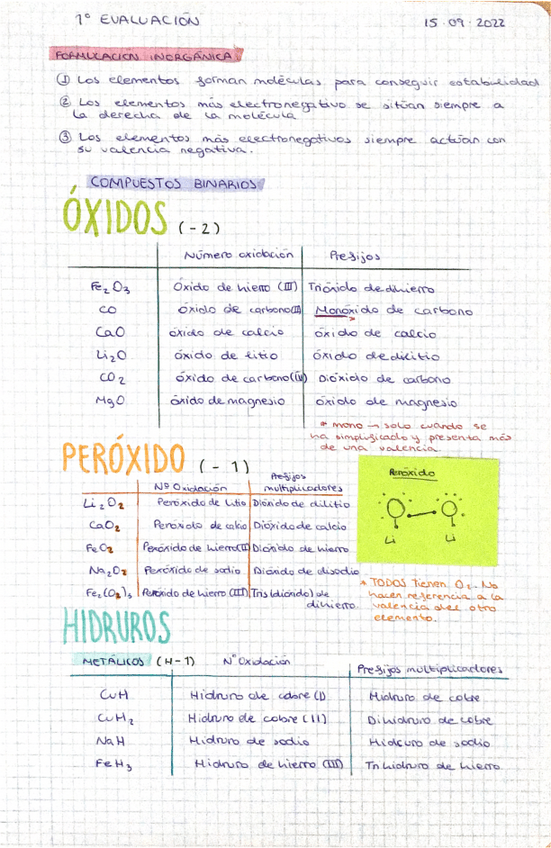 1º EVALUACIÓN 15·09·2022
FORMULACIÓN INORGÁNICA
① Los elementos forman moléculas para conseguir estabilidad
② Los elementos más electronegativo se sitúan siempre a
la derecha de la molécula
③ Los elementos más electronegativos siempre actúan con
su valencia negativa.
COMPUESTOS BINARIOS
ÓXIDOS (-2)
Número oxidación Prefijos
Fe₂O₃ Óxido de hierro (III) Trióxido de dihierro
CO óxido de carbono(II) Monóxido de carbono
CaO óxido de calcio óxido de calcio
Li₂O óxido de litio óxido de dilitio
CO₂ óxido de carbono(IV) Dióxido de carbono
MgO óxido de magnesio óxido de magnesio
* mono → solo cuándo se
ha simplificado y presenta más
de una valencia.
PERÓXIDO (-1)
Nº Oxidación Prefijos multiplicadores
Li₂O₂ Peróxido de litio Dióxido de dilitio
CaO₂ Peróxido de calcio Dióxido de calcio
FeO₂ Peróxido de hierro(II) Dióxido de hierro
Na₂O₂ Peróxido de sodio Dióxido de disodio
Fe₂(O₂)₃ Peróxido de hierro (III) Tris(dióxido) de
dihierro
Peróxido
O O
Li Li
* TODOS tienen O₂. No
hacen referencia a la
valencia del otro
elemento.
HIDRUROS
METÁLICOS (H-1) Nº Oxidación Prefijos multiplicadores
CuH Hidruro de cobre (I) Hidruro de cobre
CuH₂ Hidruro de cobre (II) Dihidruro de cobre
NaH Hidruro de sodio Hidruro de sodio
FeH₃ Hidruro de hierro (III) Trihidruro de hierro